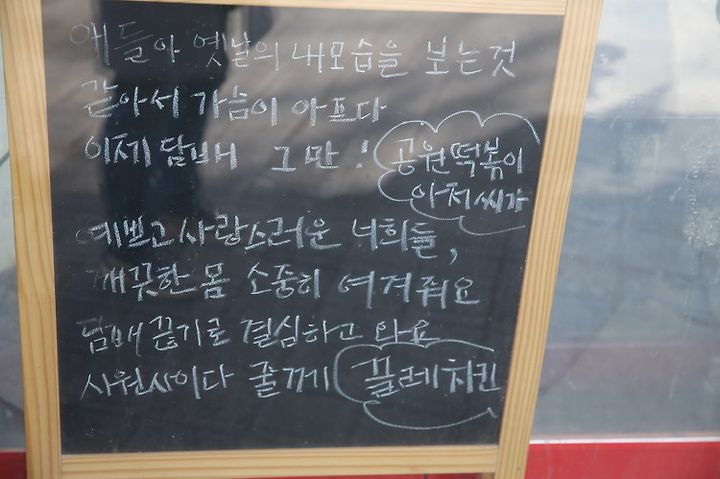 애들아 옛날의 내모습을 보는것
같아서 가슴이 아프다
이제 담배 그만!
공원떡볶이
아저씨가
예쁘고 사랑스러운 너희들,
깨끗한 몸 소중히 여겨줘요
담배 끊기로 결심하고 와요
시원사이다 줄께
끌레치킨